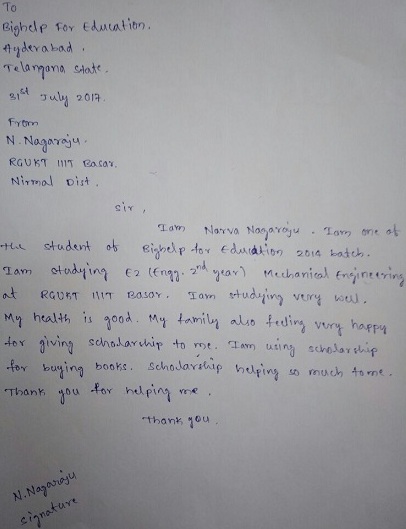 To
Bighelp For Education.
Hyderabad.
Telangana State.
31st July 2017.
From
N. Nagaraju.
RGUKT IIIT Basar.
Nirmal Dist.
Sir,
Iam Narva Nagaraju. Iam one of
the student of Bighelp for Education 2014 batch.
Iam studying E2 (Engg. 2nd year) Mechanical Engineering
at RGUKT IIIT Basar. Iam studying very well.
My health is good. My family also feeling very happy
for giving scholarship to me. Iam using scholarship
for buying books. Scholarship helping so much to me.
Thank you for helping me.
Thank you.
N. Nagaraju
signature